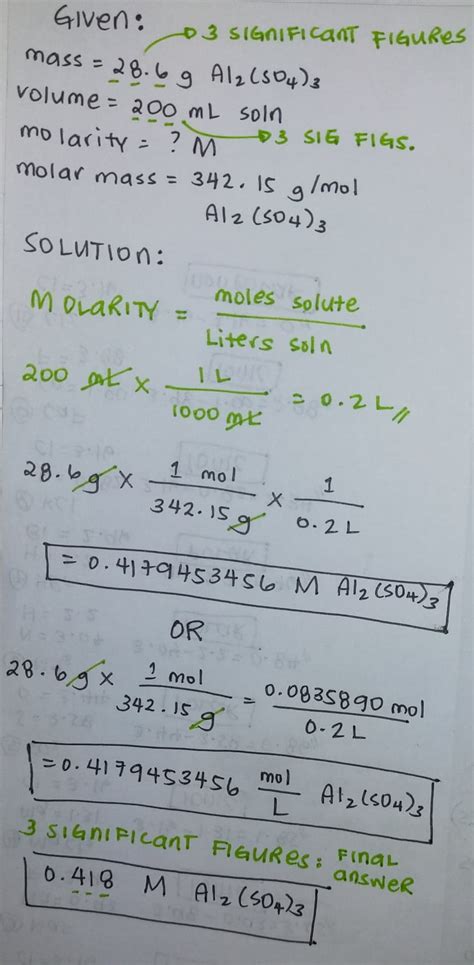 Given:
→ 3 SIGNIFICANT FIGURES
mass = 28.6 g Al2(SO4)3
volume = 200 mL soln
→ 3 SIG FIGS.
molarity = ? M
molar mass = 342.15 g/mol
Al2(SO4)3
SOLUTION:
MOLARITY = moles solute / Liters soln
200 mL × 1L / 1000 mL = 0.2 L //
28.6 g × 1 mol / 342.15 g × 1 / 0.2 L
= 0.4179453456 M Al2(SO4)3
OR
28.6 g × 1 mol / 342.15 g = 0.0835890 mol / 0.2 L
= 0.4179453456 mol / L Al2(SO4)3
3 SIGNIFICANT FIGURES: FINAL answer
0.418 M Al2(SO4)3